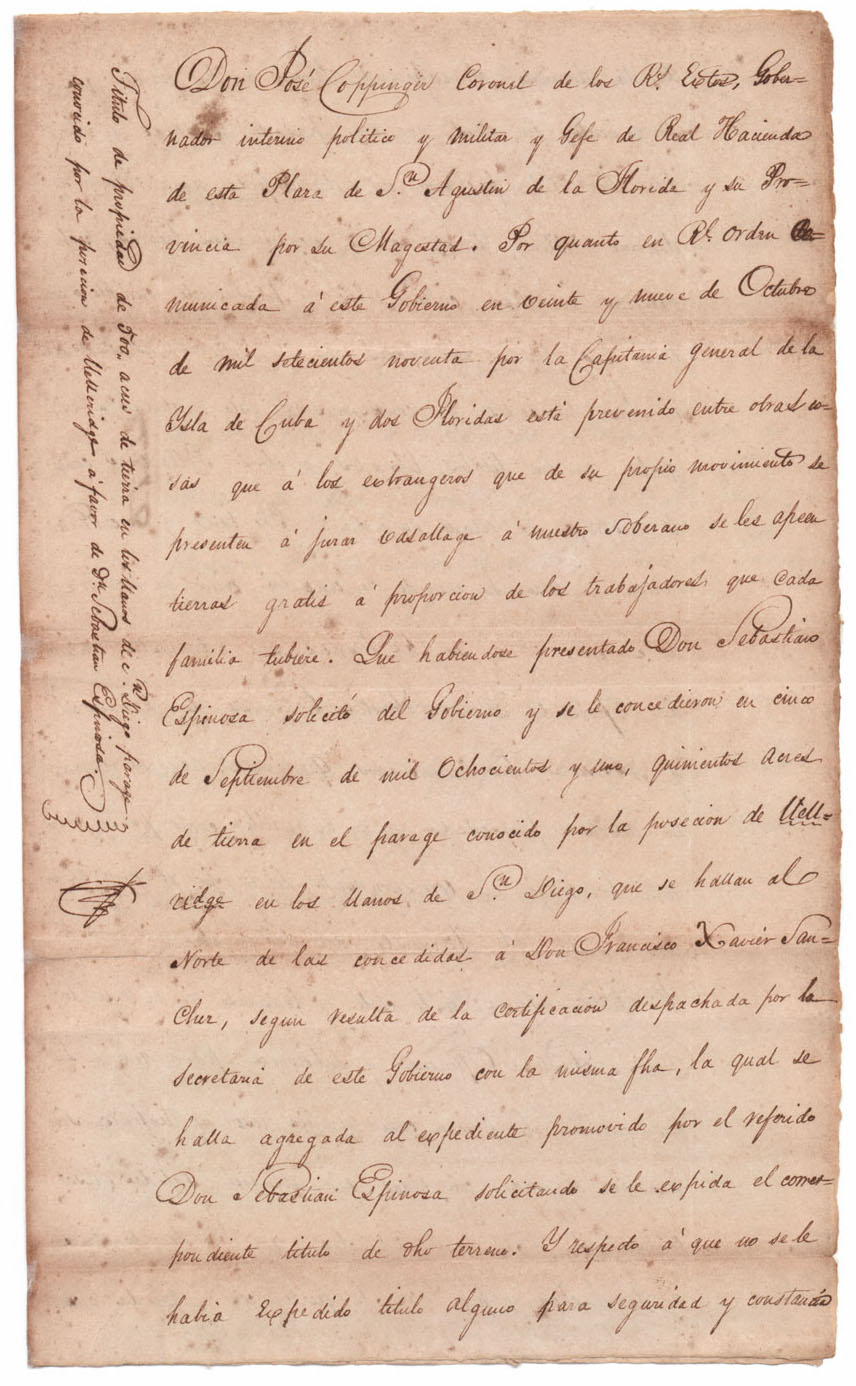 Titulo de propiedad de 500,, acres de tierra en los llanos de Sn. Diego parage
conocido por la posecion de Uelleridge á favor de Dn. Sebastian Espinosa.
Don José Coppinger Coronel de los Rs. Extos, Gober-
nador interino politico y militar y Gefe de Real Hacienda
de esta Plaza de Sn. Agustin de la Florida y su Pro-
vincia por su Magestad. Por quanto en Rl. Orden co-
municada á este Gobierno en veinte y nueve de Octubre
de mil setecientos noventa por la Capitania general de la
Ysla de Cuba y dos Floridas está prevenido entre otras co-
sas que á los extrangeros que de su propio movimiento se
presenten á jurar vasallage á nuestro Soberano se les
tierras gratis á proporcion de los trabajadores que cada
familia tubiere. Que habiendose presentado Don Sebastian
Espinosa solicitó del Gobierno y se le concedieron en cinco
de Septiembre de mil Ochocientos y uno, quinientos acres
de tierra en el parage conocido por la posecion de Uelle-
ridge en los llanos de Sn. Diego, que se hallan al
Norte de las concedidas á Don Francisco Xavier San-
chez, segun resulta de la certificacion despachada por la
secretaria de este Gobierno con la misma fha, la qual se
halla agregada al expediente promovido por el referido
Don Sebastian Espinosa solicitando se le expida el corres-
pondiente titulo de dho terreno. Y respecto á que no se le
habia expedido titulo alguno para seguridad y constancia